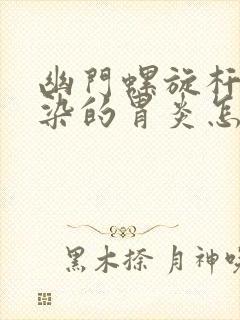 幽門螺旋杆
染的胃炎怎
黑木捺 月神唤